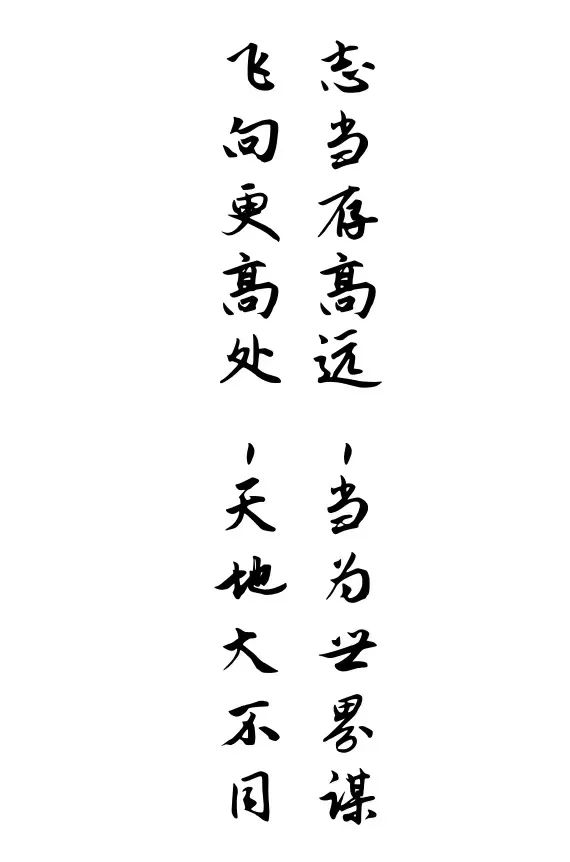 志当存高远-当为世界谋
飞向更高处-天地大不同